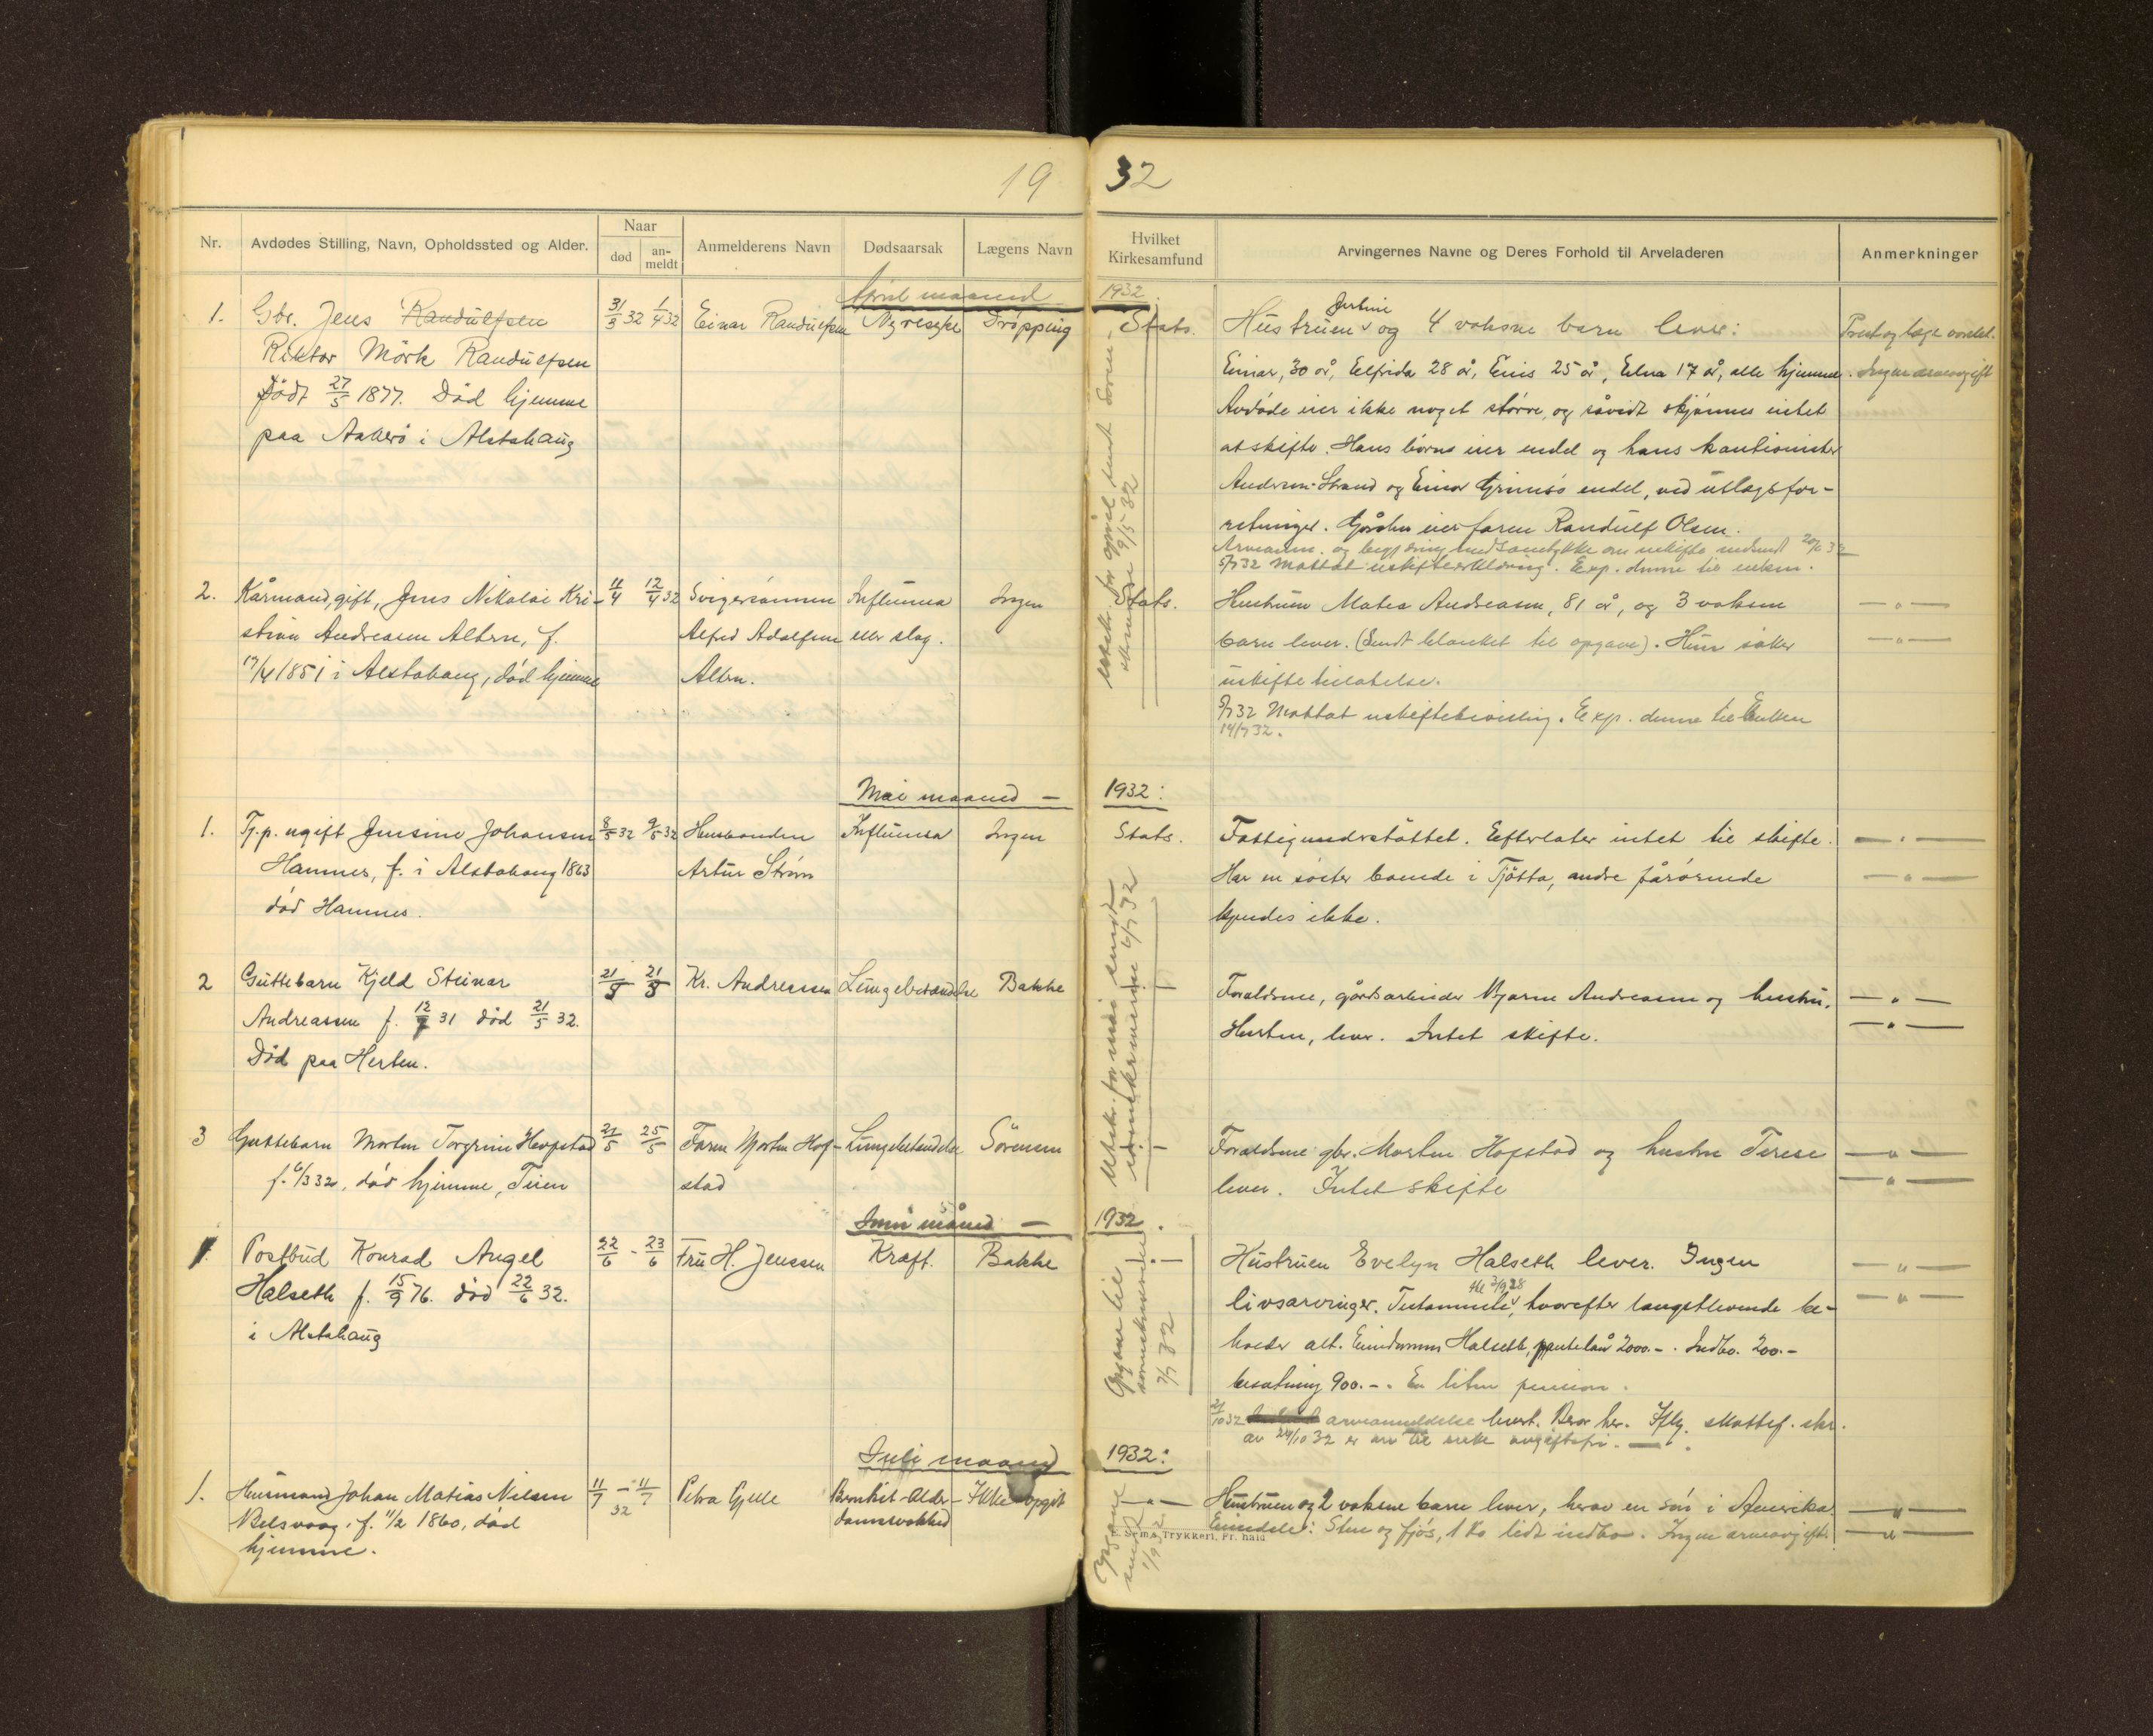 19
32
Nr.
Avdødes Stilling, Navn, Opholdssted og Alder.
Naar
død
an-
meldt
Anmelderens Navn
Dødsaarsak
Lægens Navn
Hvilket
Kirkesamfund
Arvingernes Navne og Deres Forhold til Arveladeren
Anmerkninger
April maaned
1932
1.
Gbr. Jens Randulfsen
Rektor Mörk Randulfsen
Född 27/5 1877. Död hjemme
paa Aakerö i Alstahaug
31/3 32
1/4 32
Einar Randulfsen
Nyresyke
Dröpping
Stats.
Justine
Hustruen og 4 voksne barn lever:
Einar, 30 år, Elfrida 28 år, 25 år, Edna 17 år, alle hjemme.
Avdöde eier ikke noget större, og såvidt skjönnes intet
at skifte. Hans börns eier endel og hans kautionister
Andersen Strand og Einar Grimsö endel, ved utlagsfor-
retninger. Gården eier faren Randulf Olsen.
5/7 32 Mottat uskifteerklæring. Exp. denne til enken.
Ingen arveavgift
2.
Kårmand, gift, Jens Nikolai Kri-
stian Andreasen Altern, f.
17/4 1851 i Alstahaug, död hjemme
11/4
12/4 32
Svigersönnen
Alfred Adolfsen
Altern.
Influensa
eller slag.
Ingen
Stats.
Hustruen Andreasen, 81 år, og 3 voksne
barn lever. (Sendt blanket til opgave). Hun söker
uskiftetillatelse.
5/7 32 Mottat uskiftebevilling. Exp. denne til Enken
14/7 32.
— " —
— " —
Mai maaned —
1932:
1.
Tj.p. ugift Jensine Johansen
Hamnes, f. i Alstahaug 1863
död Hamnes.
8/5 32
9/5 32
Husbonden
Artur Ström
Influensa
Ingen
Stats.
Fattigunderstöttet. Efterlater intet til skifte.
Har en söster boende i Tjötta, andre pårörende
kjendes ikke.
— " —
— " —
2
Guttebarn Kjeld Steinar
Andreassen f. 12/ 31 död 21/5 32.
Död paa Herten.
21/5
21/5
Kr. Andreassen
Lungebetændelse
Bakke
Foreldrene, gårdsarbeider Bjarne Andreasen og hustru,
Herten, lever. Intet skifte.
— " —
— " —
3
Guttebarn Morten Torgrim Hofstad
f. 6/3 32, död hjemme, Tien
21/5
25/5
Faren Morten Hof-
stad
Lungebetændelse
Sörensen
Foreldrene gbr. Morten Hofstad og hustru Terese
lever. Intet skifte
— " —
— " —
Juni måned —
1932.
1.
Postbud Konrad Angel
Halseth f. 15/9 76. död 22/6 32.
i Alstahaug
22/6 -
23/6
Fru H. Jenssen
Kræft.
Bakke
Hustruen Evelyn Halseth lever. Ingen
livsarvinger. Testamente, hvorefter længstlevende be-
holder alt. Eiendommen Halseth, pantelån 2000.-. Indbo. 200.-
besætning 900.-. En liten pension.
arveanmeldelse Beror her. Iflg. skattef. skr.
av 24/10 32 er arv til enke avgiftsfri. —
— " —
— " —
Opgave til
2/7 32
Juli maaned
1932:
1.
Husmand Johan Matias Nilsen
Belsvaag, f. 11/2 1860, död
hjemme.
11/7 — 11/7
32
Petra Gjelle
Bronkit-Alder-
domssvakhed
Ikke opgit
— " —
Hustruen og 2 voksne barn lever, herav en sön i Amerika.
Eiendeler: Stue og fjös, 1 ko lidt indbo. Ingen arveavgift.
— " —
— " —
Opgave
sendt
1/9 32
E. Sems Trykkeri, Fr.hald